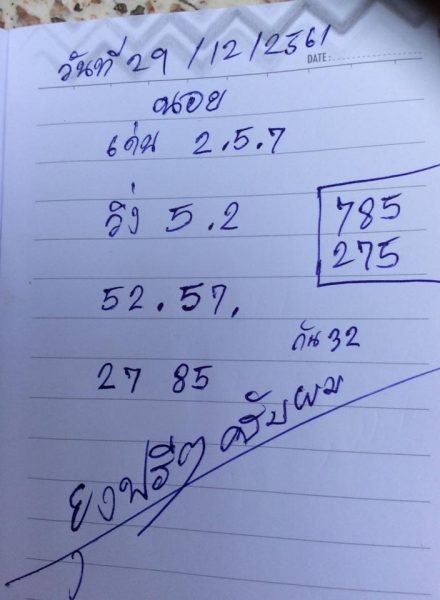 วันที่ 29 / 12 / 2561
DATE:
ฉอย
เด่น 2.5.7
วิ่ง 5.2
785
275
52.57.
กัน 32
27 85
ฟรีๆ ครับผม